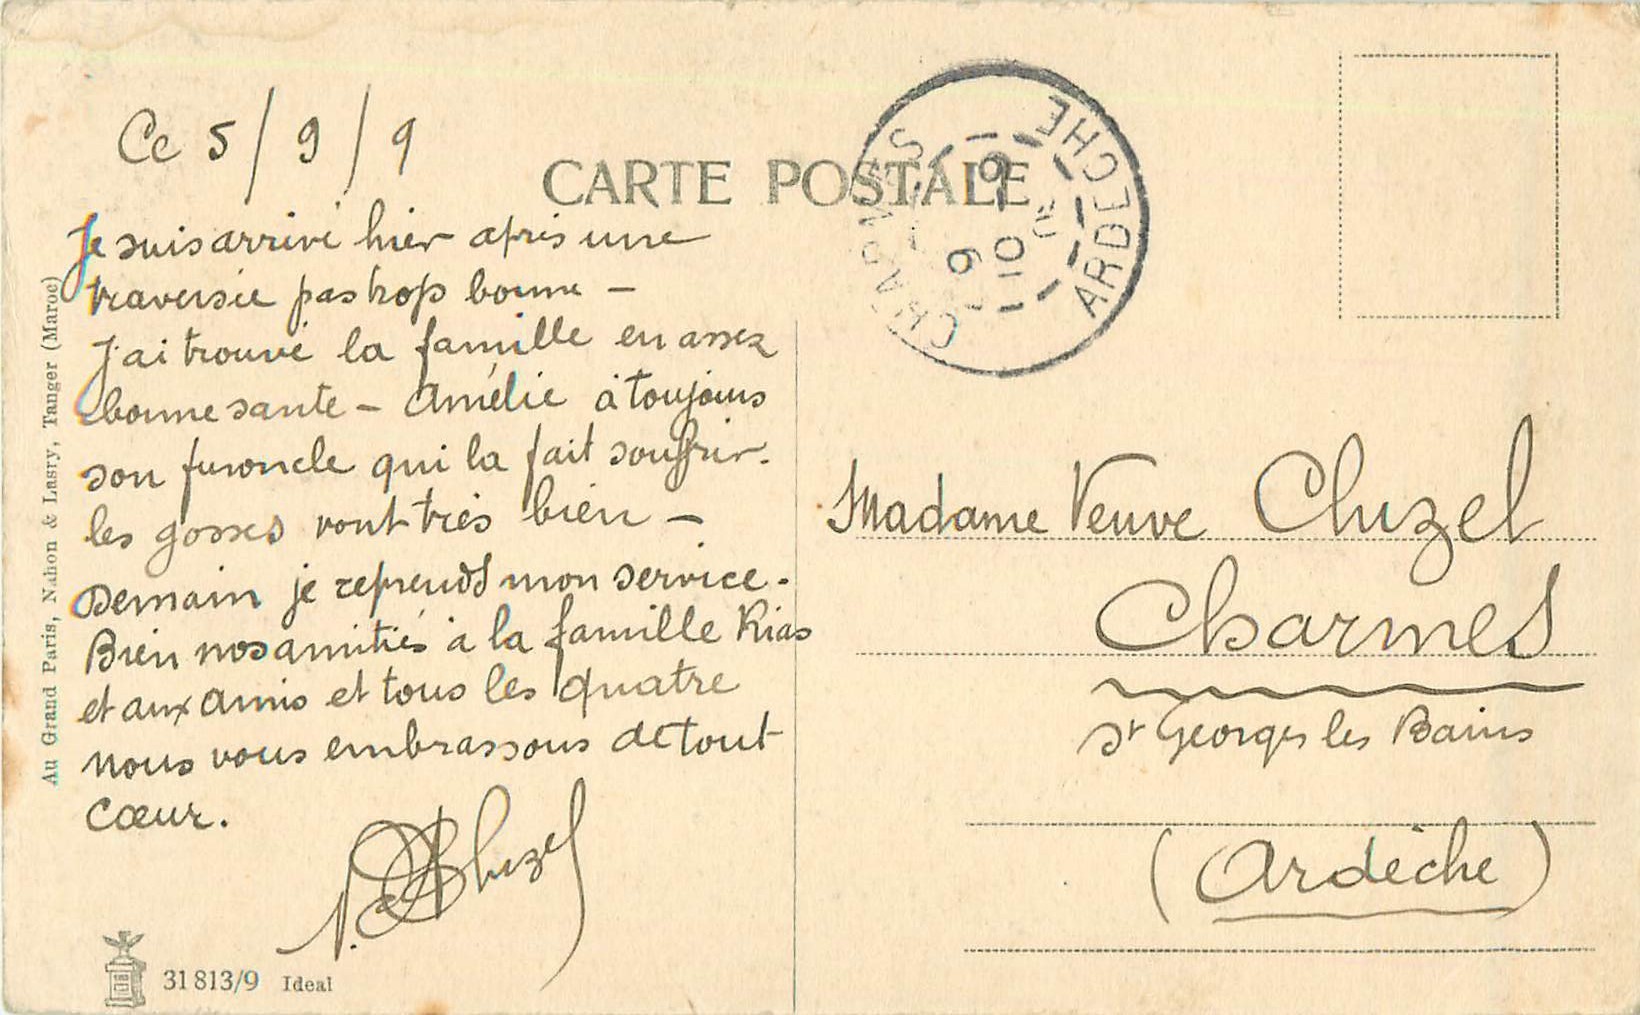 Ce 5/9/9
CARTE POSTALE
Je suis arrivé hier après une
traversée pas trop bonne –
J'ai trouvé la famille en assez
bonne santé – Amélie à toujours
son furoncle qui la fait souffrir.
les gosses vont très bien –
Demain je reprends mon service.
Bien nos amitiés à la famille Rias
et aux amis et tous les quatre
nous vous embrassons de tout
cœur.
Cluzel
Au Grand Paris, Nahon & Lasry, Tanger (Maroc)
31813/9 Ideal
CHARMES ARDECHE
10 9
Madame Veuve Cluzel
Charmes
St Georges les Bains
(Ardèche)